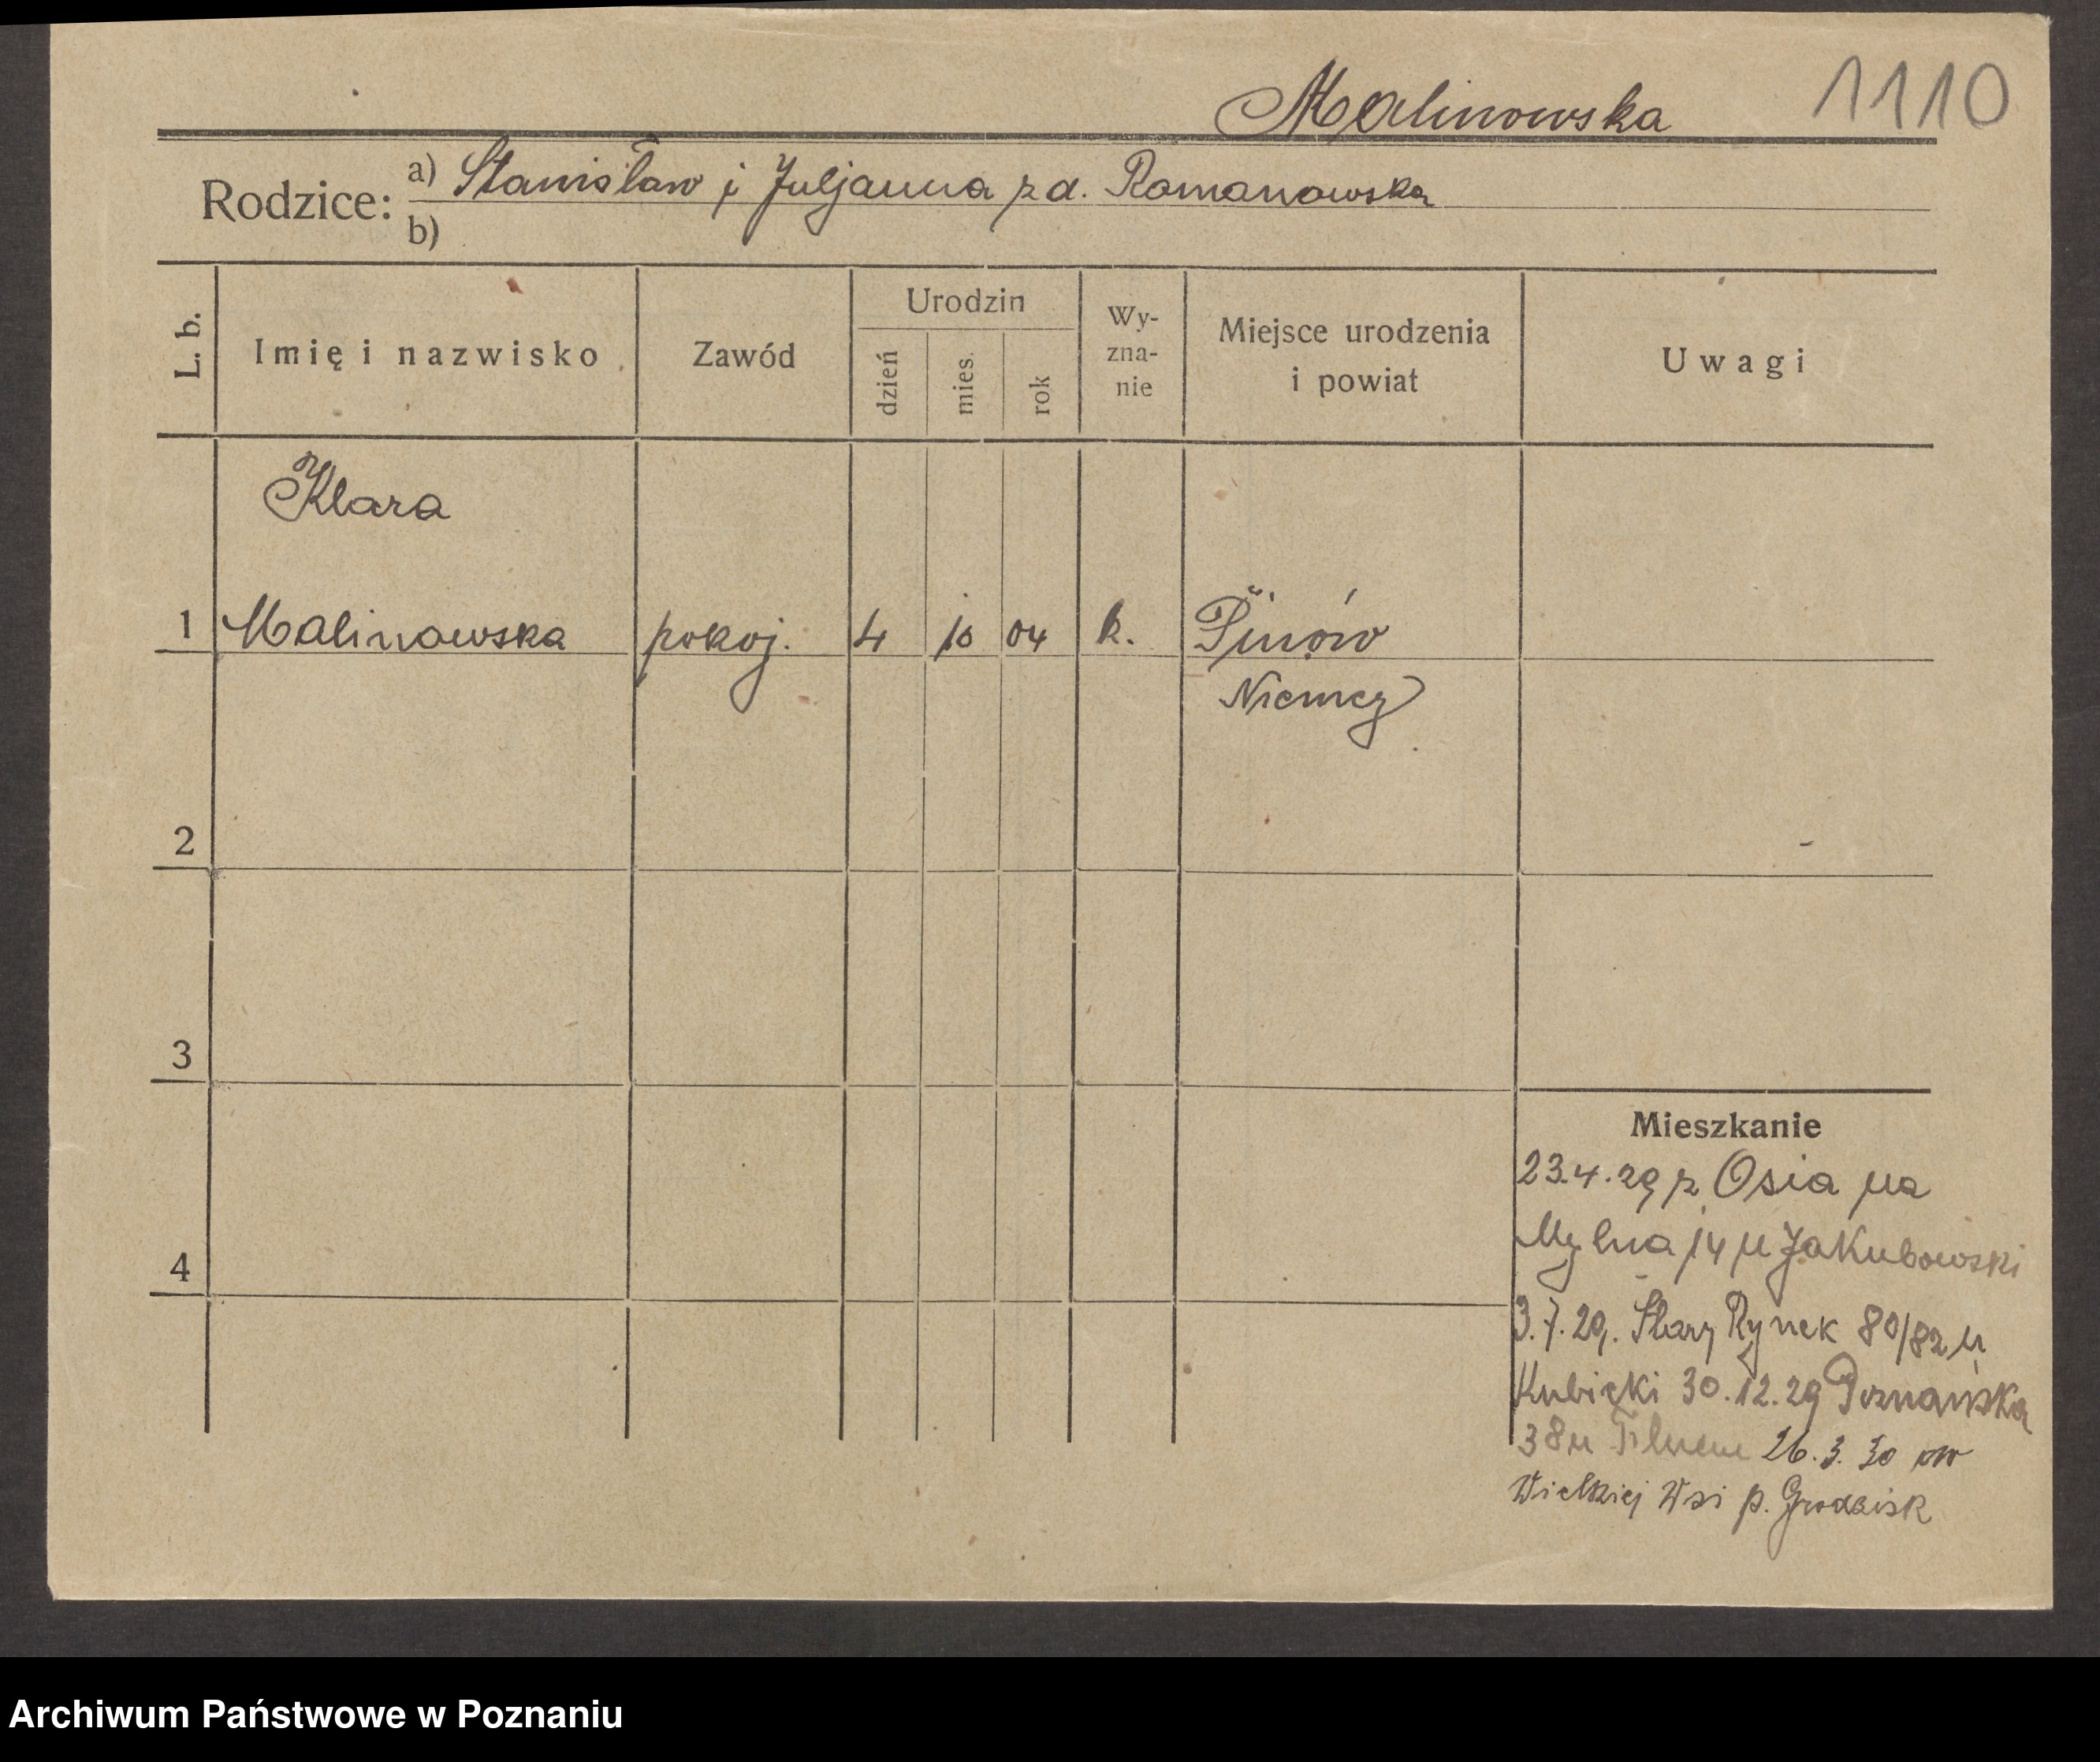 Malinowska 1110
Rodzice: a) Stanisław i Juljanna z d. Romanowska
b)
L. b. Imię i nazwisko Zawód Urodzin dzień mies. rok Wy-zna-nie Miejsce urodzenia i powiat Uwagi
Klara
1 Malinowska pokoj. 4 10 04 k.
Niemcy
2
3
4
Mieszkanie
23.4.29 z Osia na
Mylna 14 u Jakubowski
3.7.29. Stary Rynek 80/82 u
Kubicki 30.12.29 Poznańska
38 u 26.3.30 w
Wielkiej Wsi p. Grodzisk
Archiwum Państwowe w Poznaniu